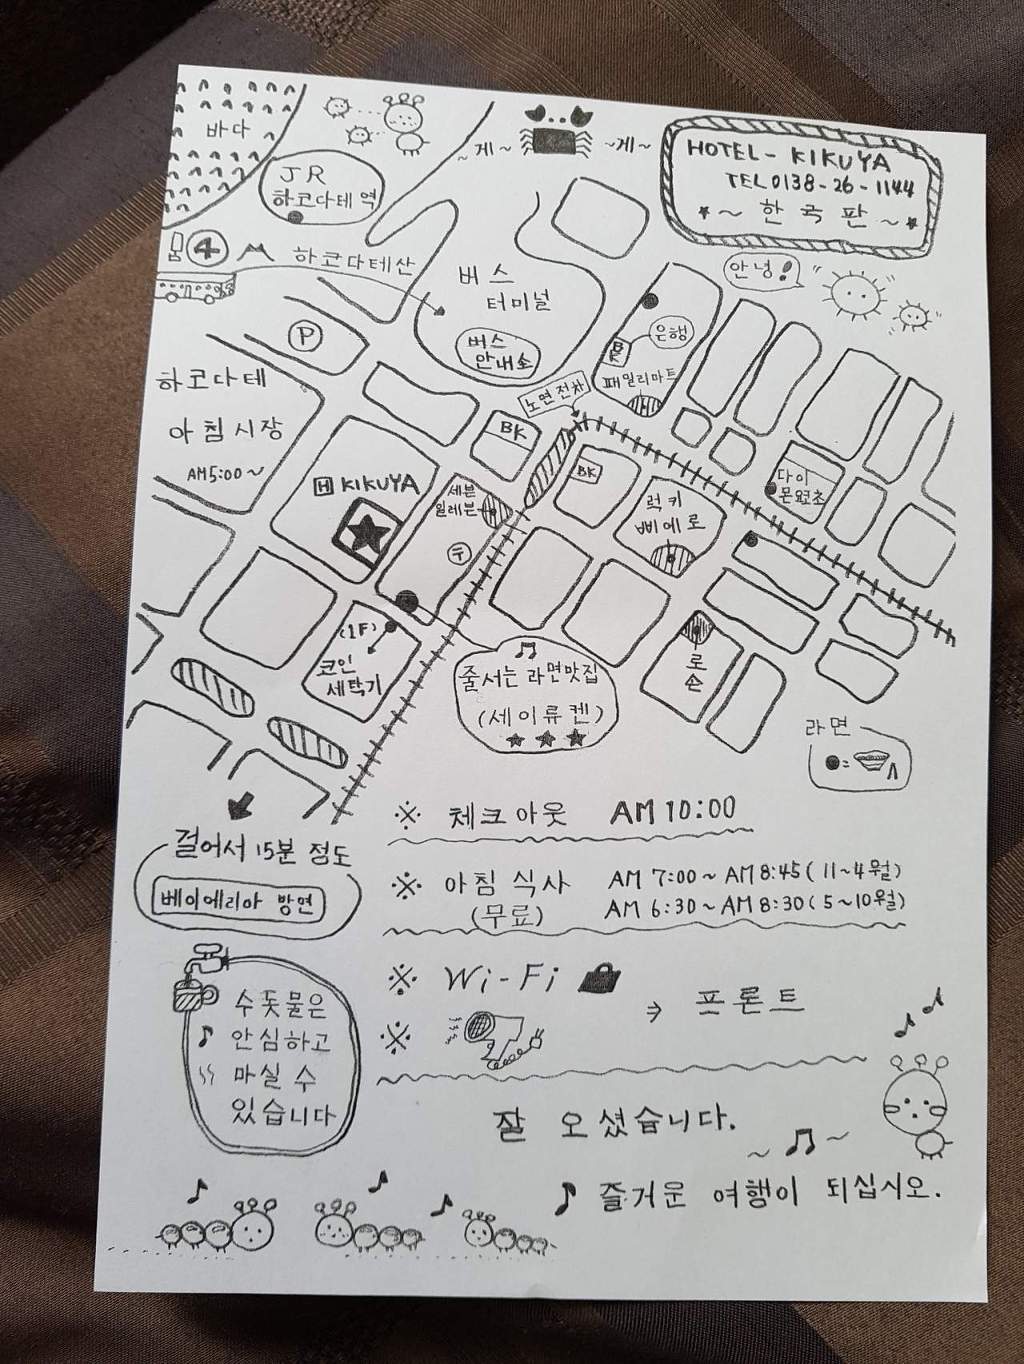 바다
JR
하코다테 역
~게~
~게~
HOTEL - KIKUYA
TEL 0138-26-1144
★~한국판~★
안녕!
4
하코다테산
버스
터미널
버스
안내소
P
은행
BK
패밀리마트
노면전차
하코다테
아침시장
AM5:00~
BK
BK
H KIKUYA
세븐
일레븐
럭키
삐에로
다이
몬요쵸
〒
(1F)
코인
세탁기
줄서는 라면맛집
(세이류켄)
★★★
로손
라면
●=
※ 체크아웃 AM 10:00
걸어서 15분 정도
베이에리아 방면
※ 아침 식사 AM 7:00~AM 8:45(11~4월)
(무료) AM 6:30~AM 8:30(5~10월)
※ Wi-Fi
※
⇒ 프론트
수돗물은
안심하고
마실 수
있습니다
잘 오셨습니다.
즐거운 여행이 되십시오.